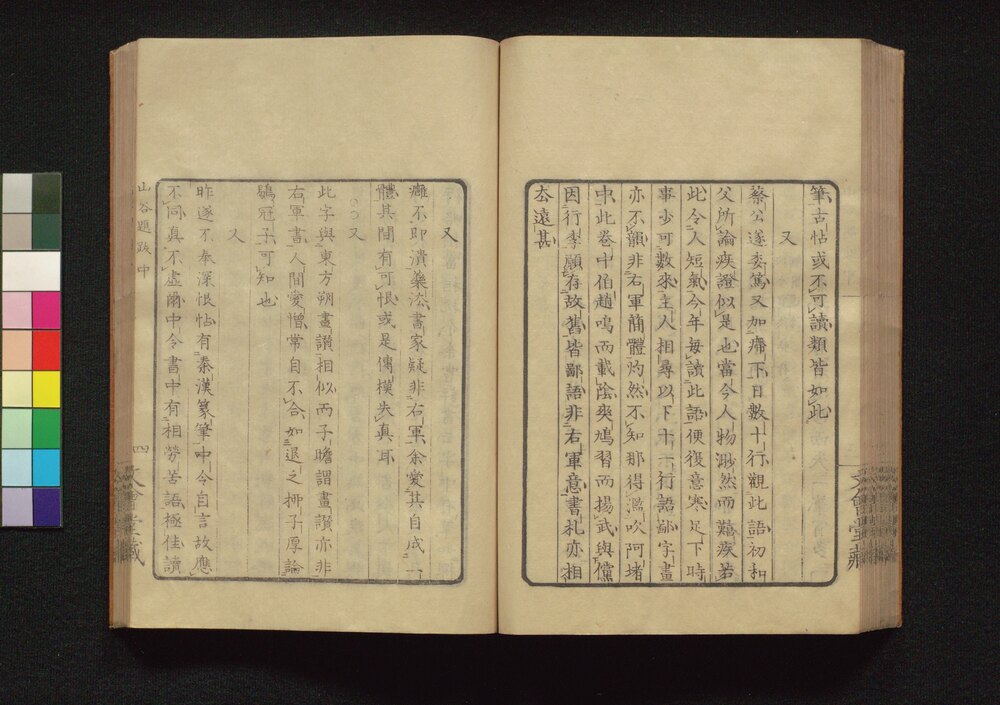 筆古帖或不可讀類皆如此
又
蔡公遂委篤又加㿃下日數十行觀此語初和
父所論疾證似是也當今人物渺然而艱疾若
此令人短氣今年每讀此語便復意寒足下時
事少可數來主人相尋以下十一行語鄙字畫
亦不韻非右軍簡體灼然不知那得濫吹阿堵
中此卷中伯趙鳴而載陰爽鳩習而揚武與儻
因行李願存故舊皆鄙語非右軍意書札亦相
去遠甚
又
癰不即潰藥法書家疑非右軍余愛其自成一
體其間有可恨或是傳模失真耳
又
此字與東方朔畫讃相似而子瞻謂畫讃亦非
右軍書人間愛憎常自不合如退之柳子厚論
鶡冠子可知也
又
昨遂不奉深恨帖有秦漢篆筆中令自言故應
不同真不虛爾中令書中有相勞苦語極佳讀
山谷題跋中
四
文會堂藏
文會堂藏